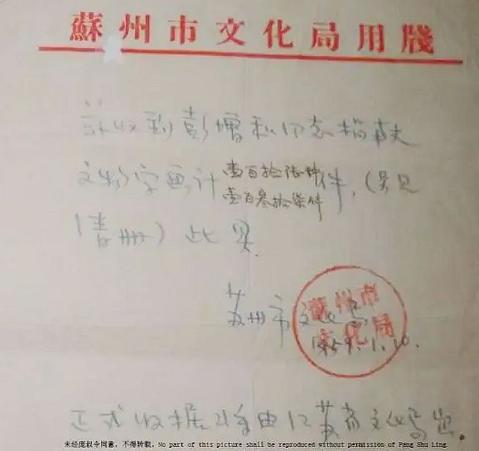 蘇州市文化局用牋
兹收到彭增和同志捐献
文物字画计
壹百叁拾柒件
件，（另见
清册）此具
苏州市文化局
蘇州市
文化局
1959.1.10.
正式收据将由江苏省文化局出
未经庞叔令同意，不得转载。No part of this picture shall be reproduced without permission of Pang Shu Ling